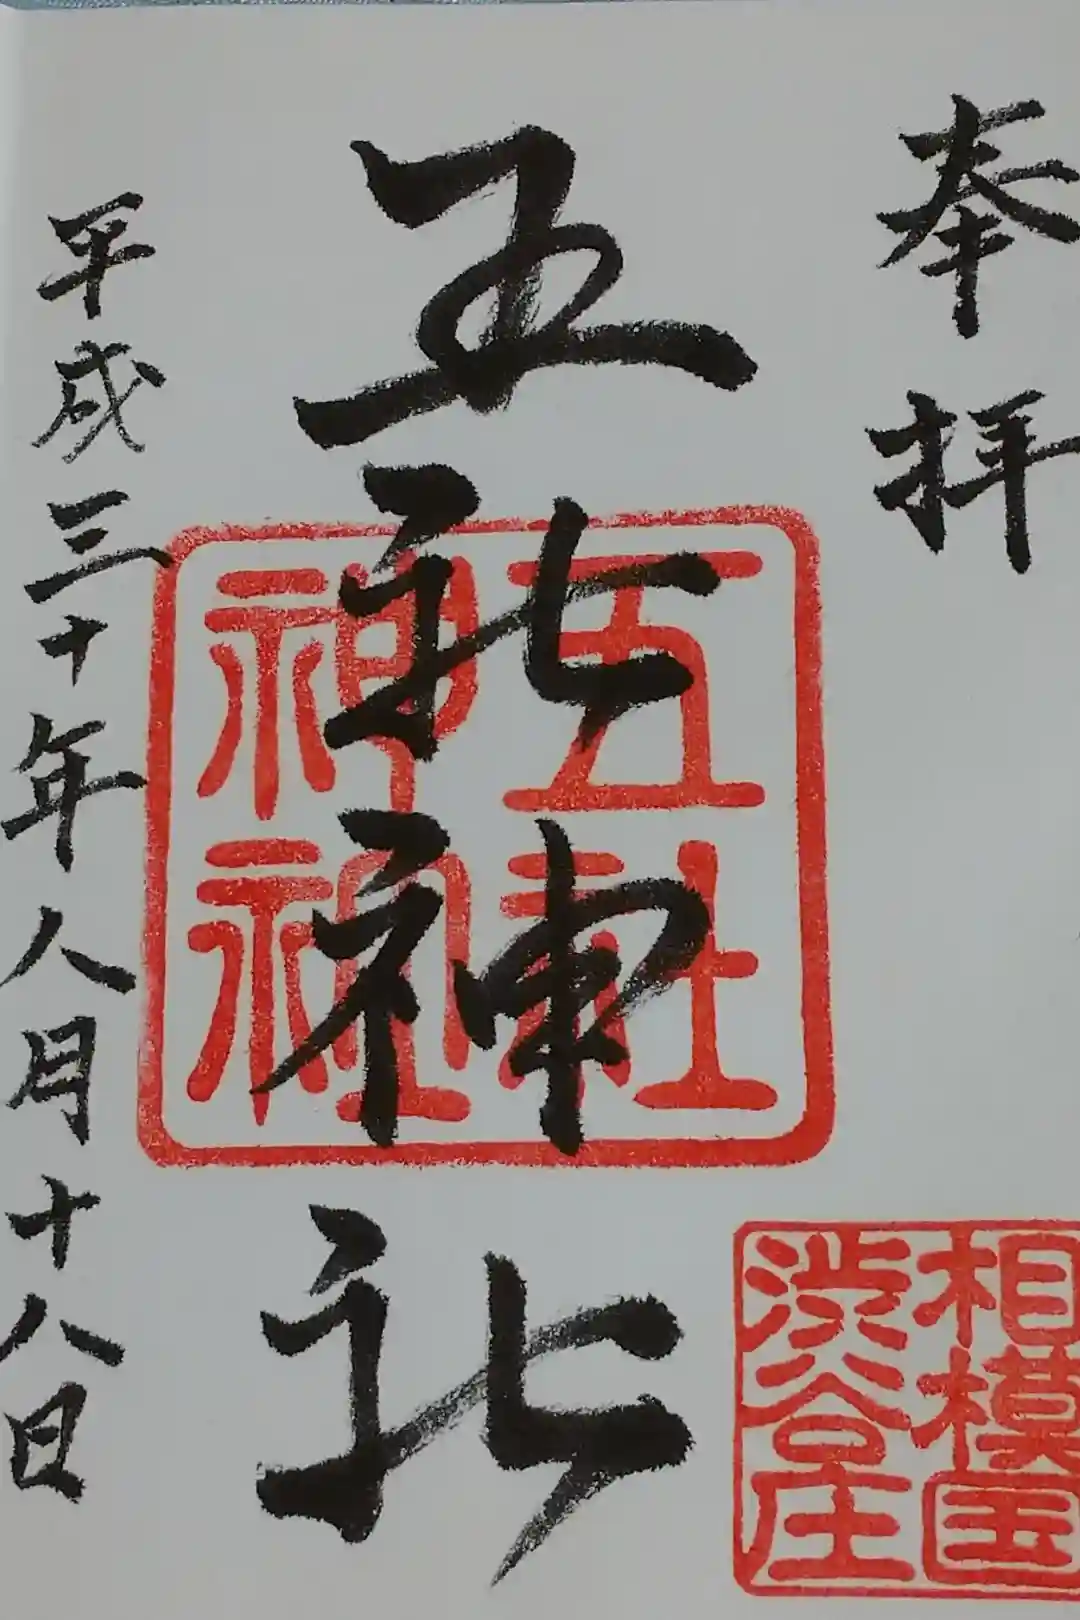 奉拝
相模国
渋谷庄
五社神社
五社
神社
平成三十年八月十八日